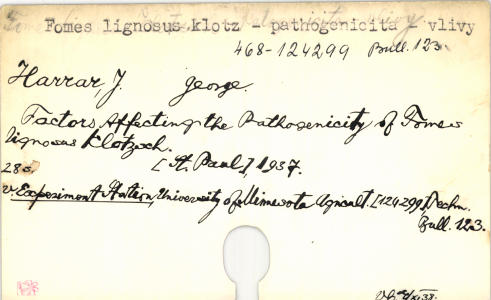 Fomes lignosus klotz - pathogenicita - vlivy
468-124299 Bull. 123
Harrar, J. George.
Factors Affecting the Pathogenicity of Fomes
lignosus Klotzsch.
[St. Paul] 1937.
28 s.
v. Experiment Station, University of Minnesota Agricult. [124299] Techn.
Bull. 123.